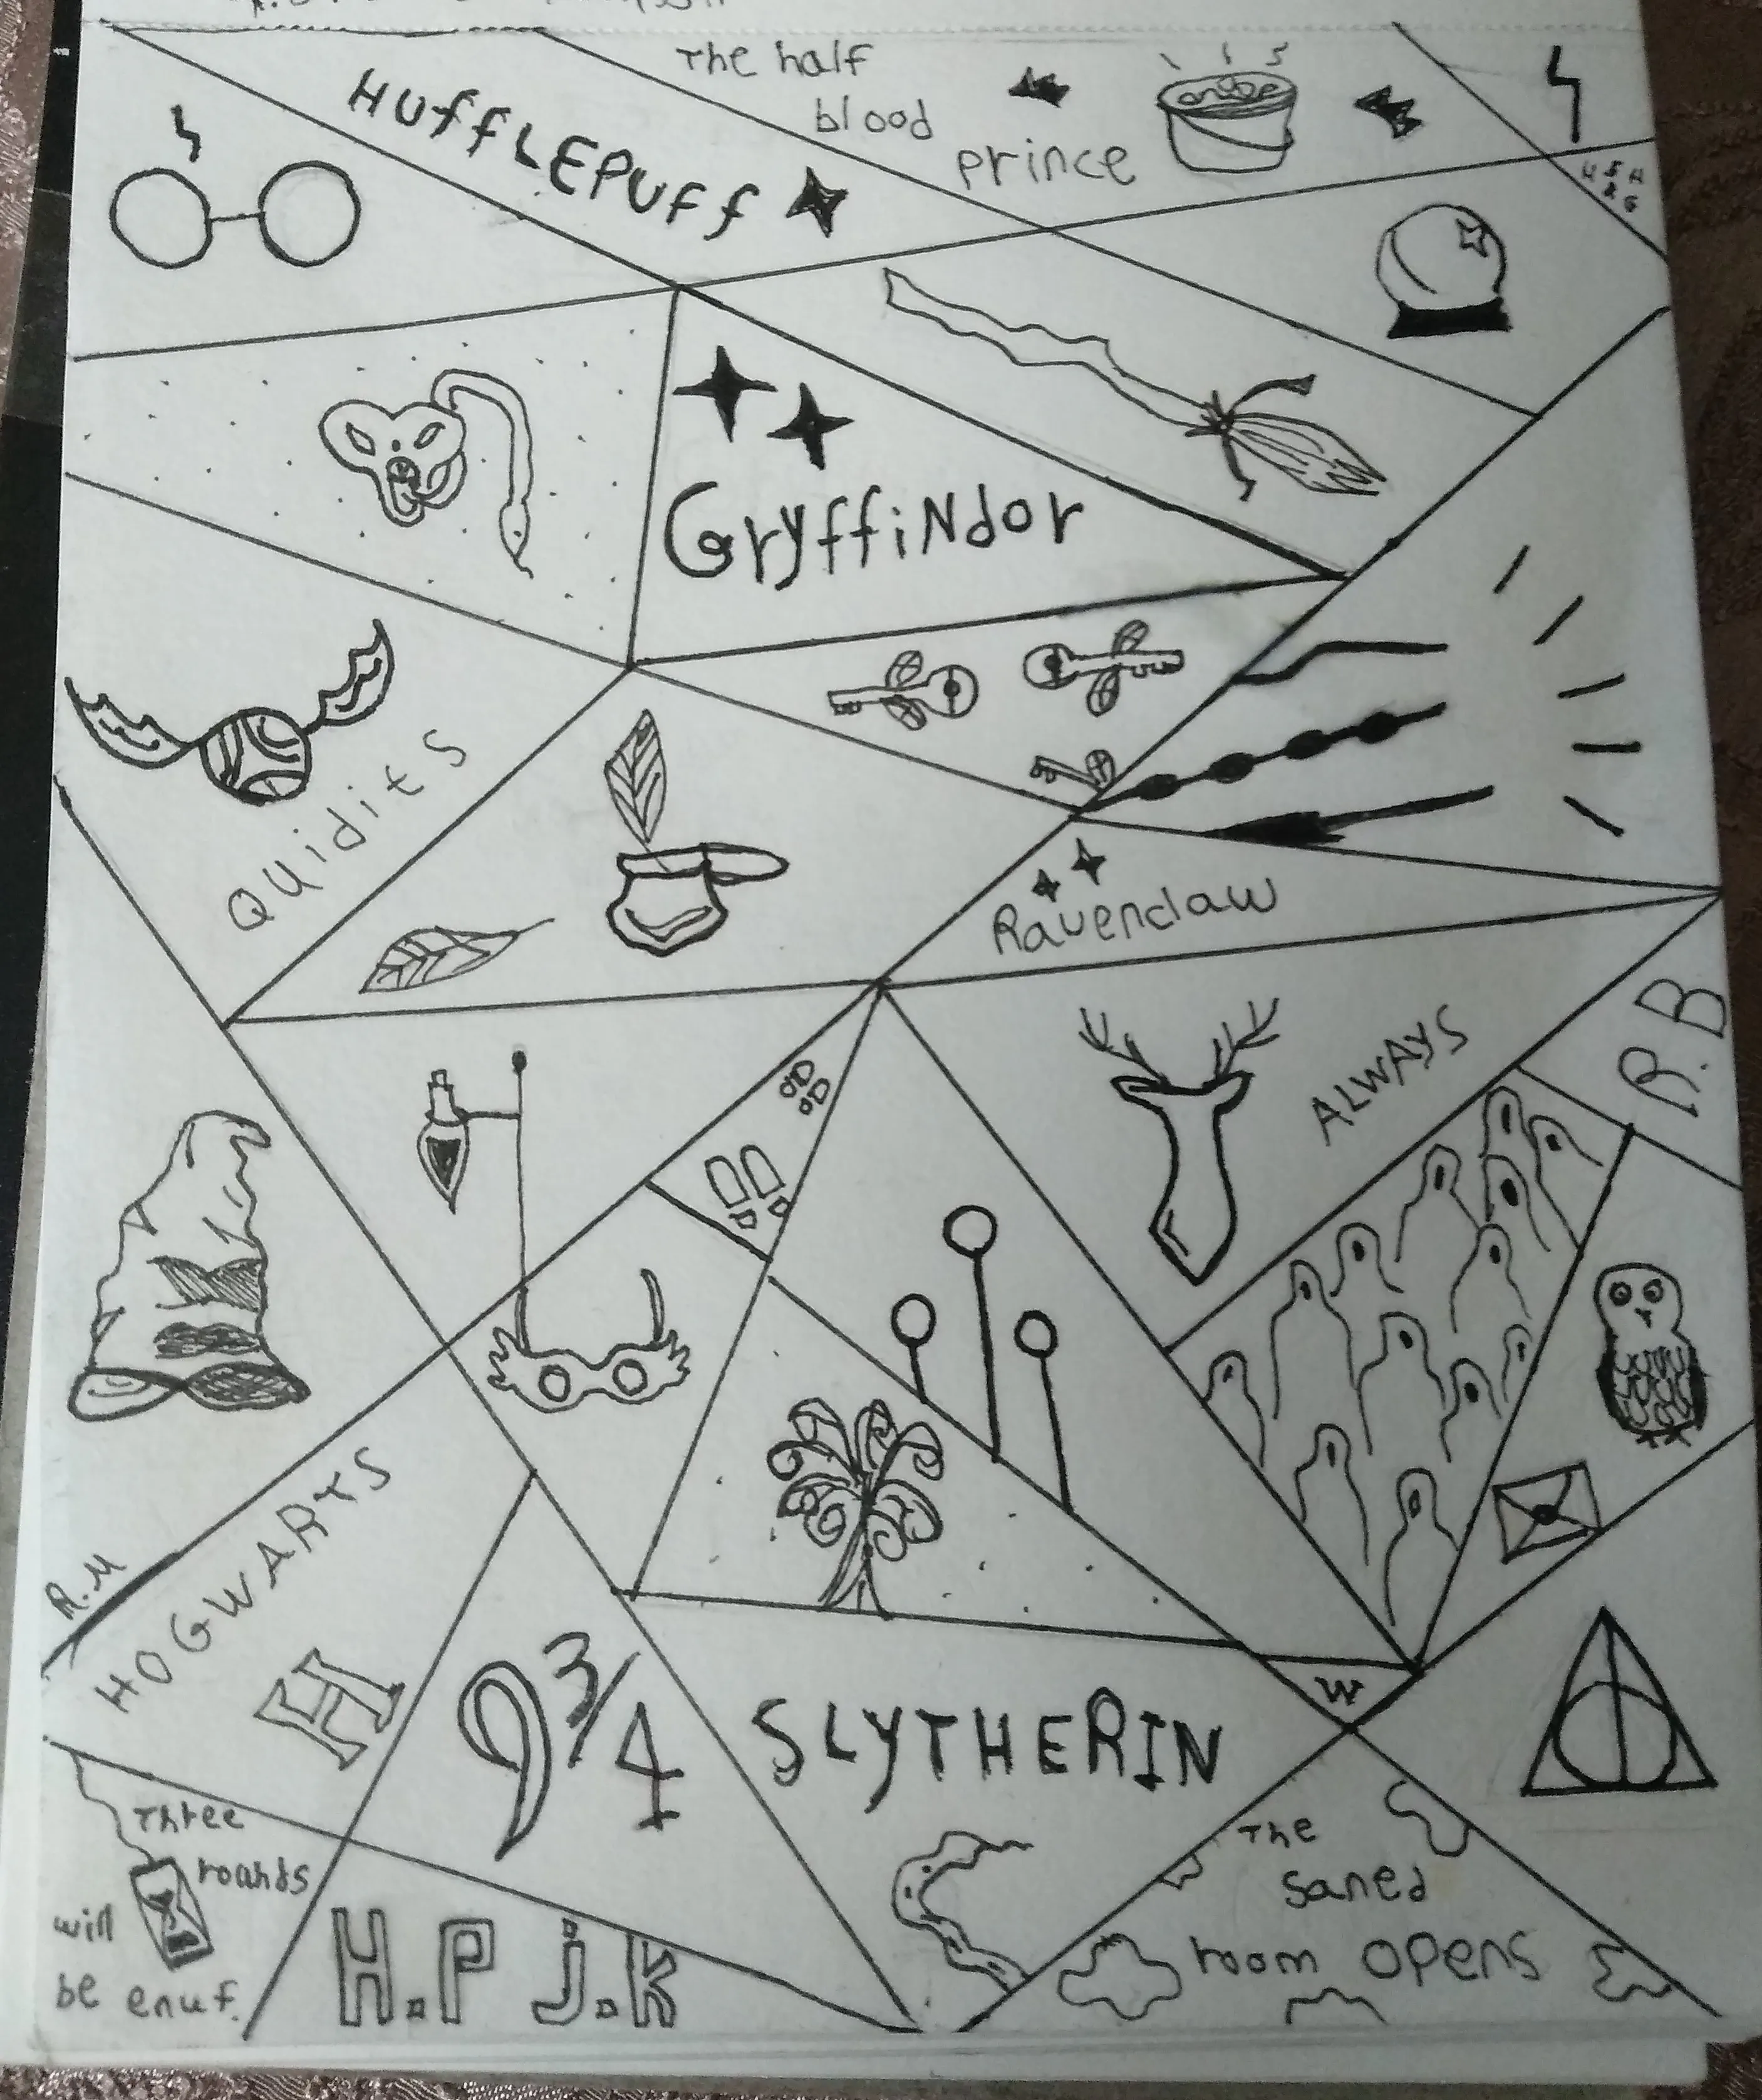 The half
blood
prince
HUffLEPUff
H & H
& G
GryffiNdor
QUidits
Ravenclaw
ALWAYS
R.B
R.M
HOGWARTS
H
9 3/4
SLYTHERIN
W
Three
rounds
will
be enuf.
H.P J.K
The
saned
room opens